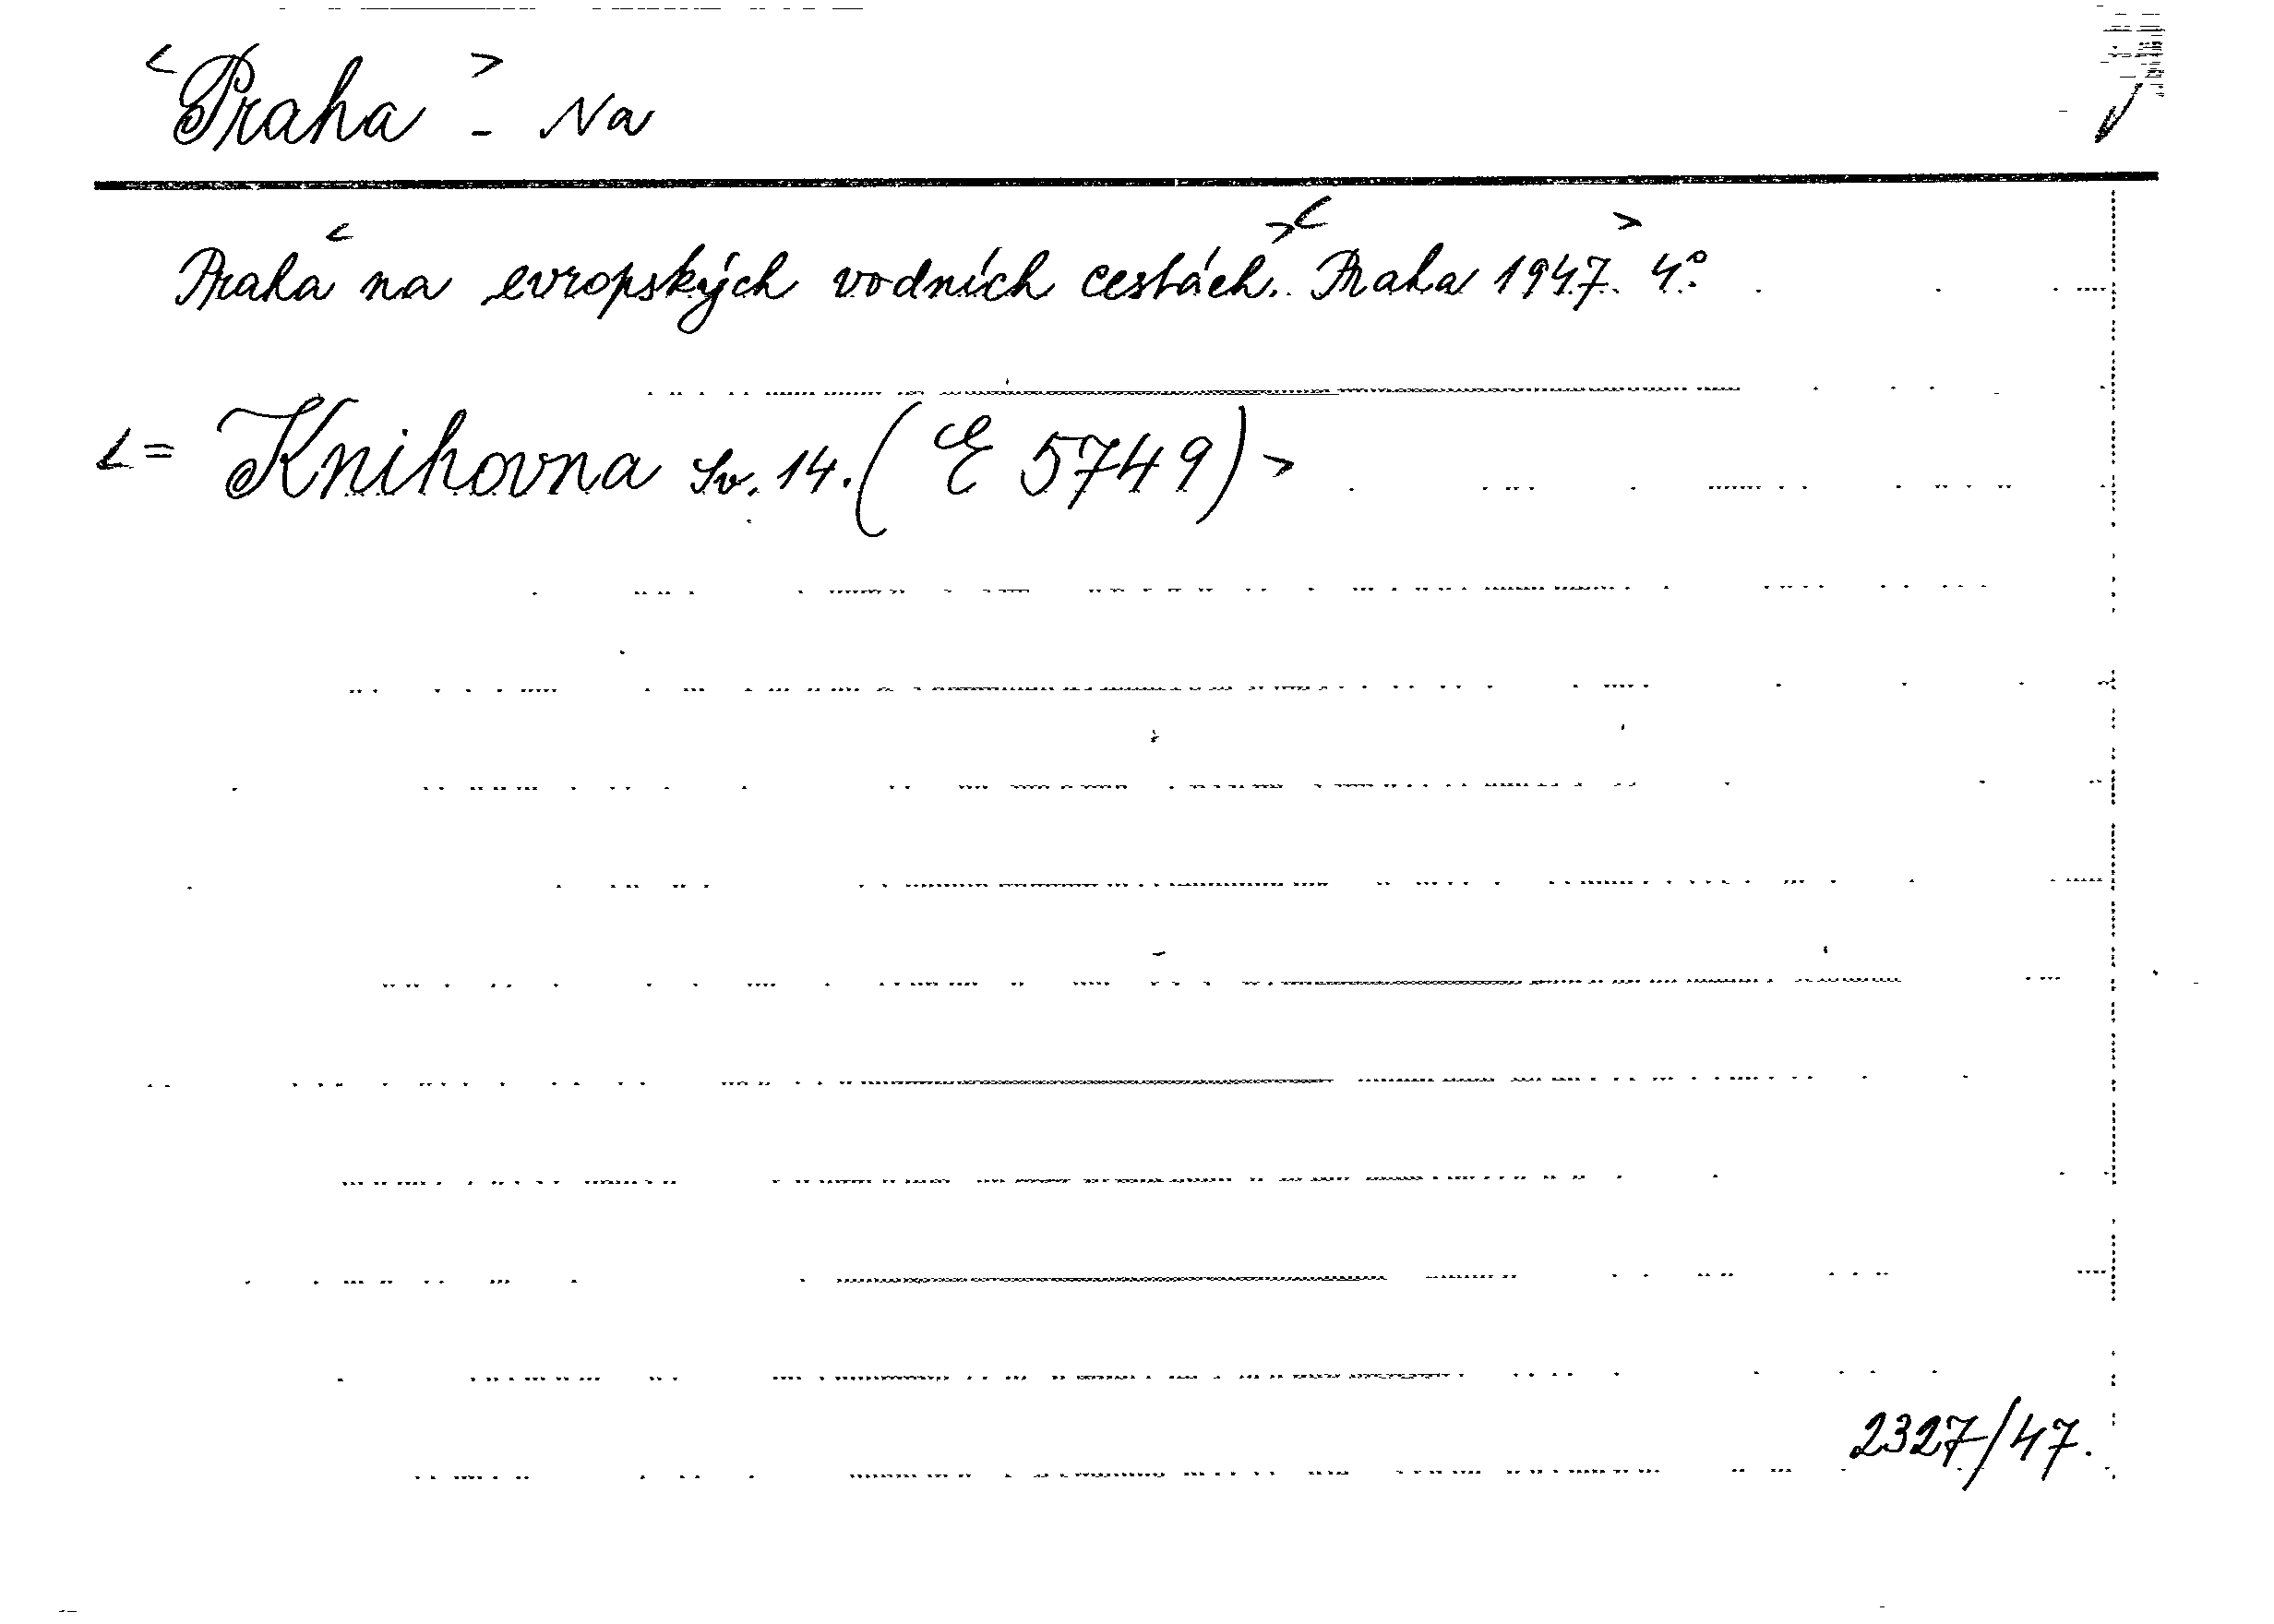 <Praha> - Na
Praha <na evropských vodních cestách.> <Praha 1947.> 4°.
<= Knihovna Sv. 14. (E 5749)>
2327/47.